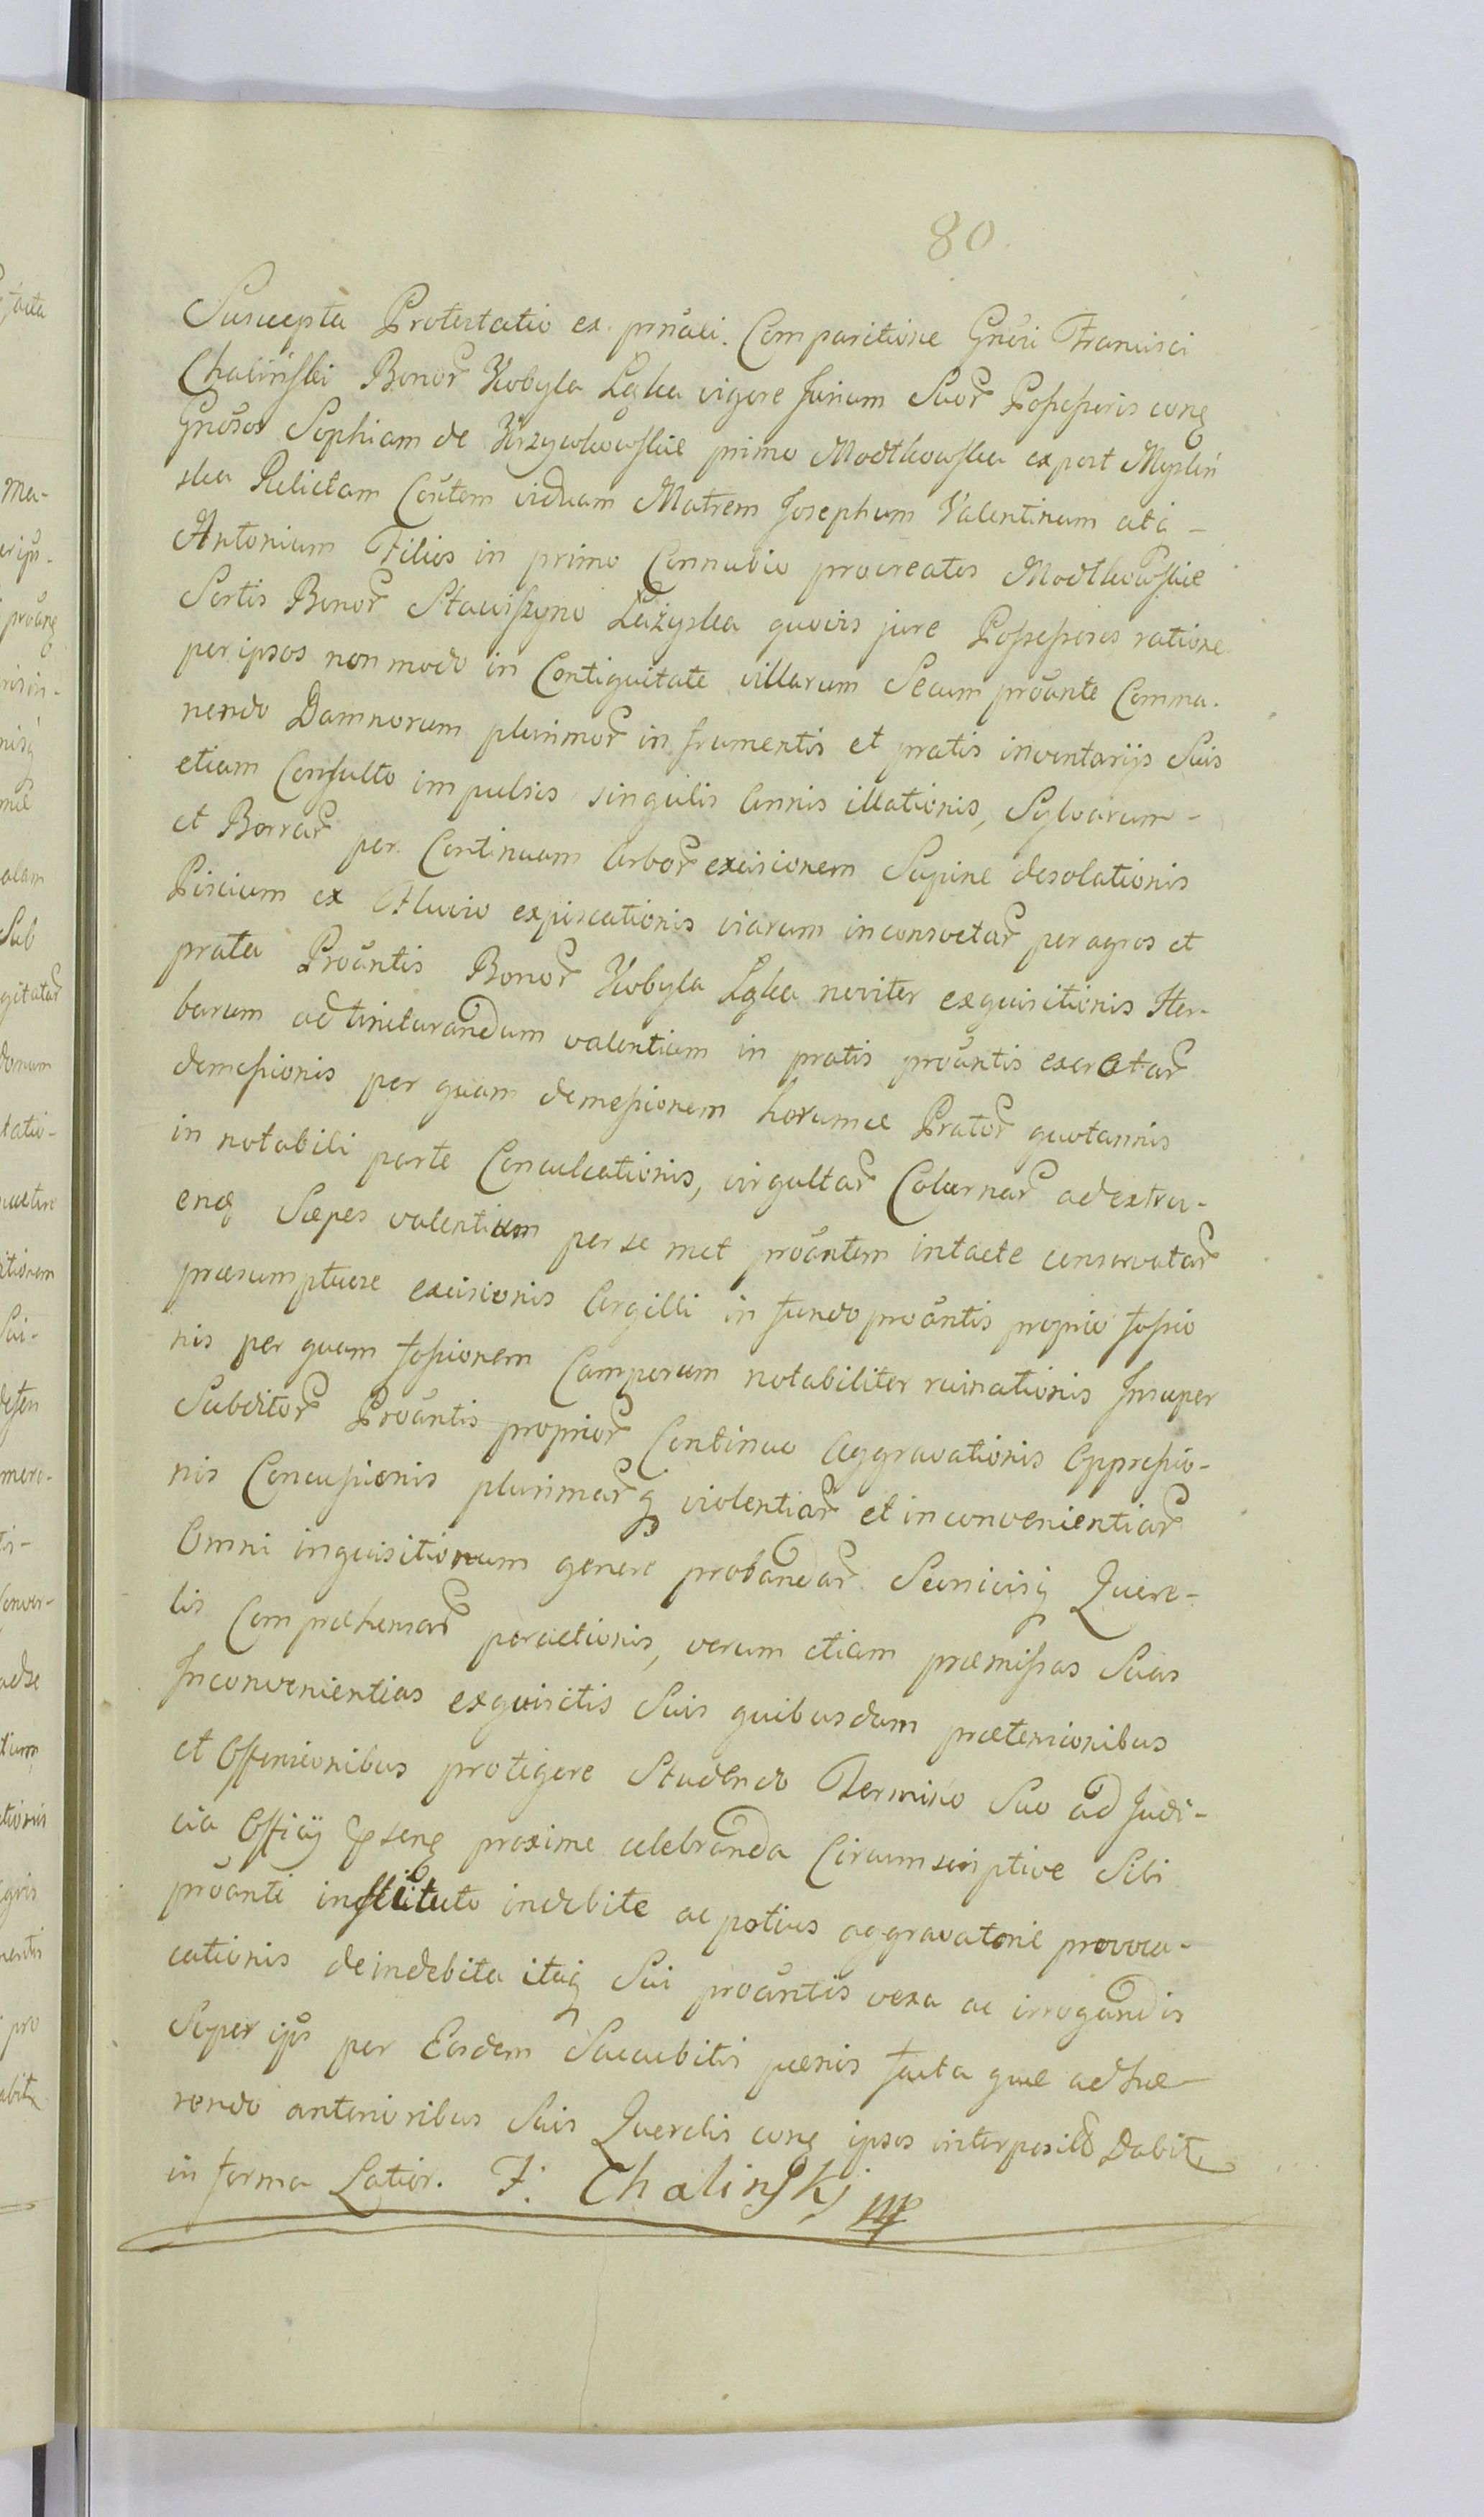 80.
Suscepta Protestatio ex prnãli. Comparitione Gnõsi Francisci
Chalinski Bonor Kobyla Łąka vigore Jurium Suor Possessoris cong
Gnõsos Sophiam de Krzyckowskie primo Modtkowska expost Myslin
ska Relictam Coñtem viduam Matrem Josephum Valentinum atq
Antonium Filios in primo Connubio procreatos Modtkowskie
Sortis Bonor Stawiszyno Łażyska quovis jure Possessores ratione
per ipsos non modo in Contiguitate villarum Secum proãnte Comma-
nendo Damnorum plurimor in frumentis et pratis inventarijs Suis
etiam Consulto impulsis singulis Annis illationis, Sylvarum-
et Borrar per Continuam Arbor excisionem Supine desolationis
Piscium ex Fluvio expiscationis viarum inconsvetar per agros et
prata Proãntis Bonor Kobyla Łąka noviter exquisitionis Her-
barum ad tincturandum valentium in pratis proãntis exeretar
demessionis per quam demessionem horumce Prator quotannis
in notabili parte Conculcationis, virgultar Colurnar ad extru-
enđ Sæpes valentium per se met proãntem intacte conservatar
præsumptuose excisionis Argilli in fundo proãntis proprio fossio
nis per quam fossionem Camporum notabiliter ruinationis Insuper
Subditor Proãntis proprior Continuo Aggravationis Oppressio-
nis Concussionis plurimarq violentiar et inconvenientiar
Omni inquisitionum genere probandar Seorsivisq Quere-
lis Compræhensar peractionis, verum etiam præmissas Suas
Inconvenientias exquisitis Suis quibusdam prætensionibus
et Offensionibus protegere Studendo Termino Suo ad Judi-
cia Officij Psenę proxime celebranda Circumscriptive Sibi
proãnti instituto indebite ac potius aggravatorie provoca-
cationis de indebita itaq Sui proãntis vexa ac irrogandis
Super ijs per Eosdem Succubitis pœnis facta quæ adhæ
rendo anterioribus Suis Querelis cong ipsos interpositis Dabit
in forma Latior. F. Chalinskj mp